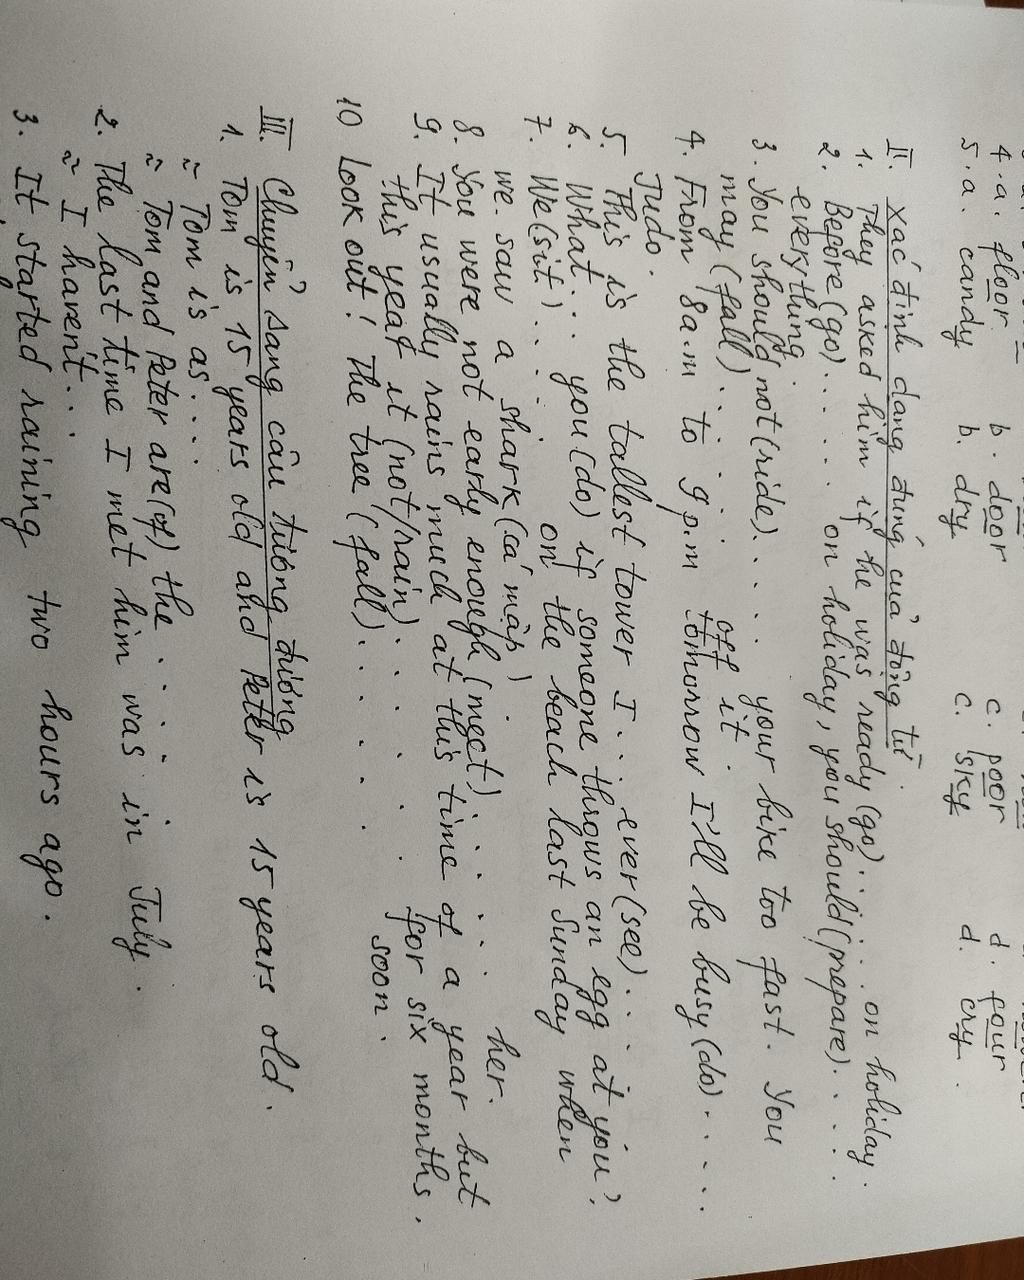 4. a. floor b. door c. poor d. four
5. a. candy b. dry c. sky d. cry.
II. Xác đinh dạng đúng của động từ.
1. They asked him if he was ready (go)...... on holiday.
2. Before (go)..... on holiday, you should (prepare)....
everything.
3. You should not (ride).... your bike too fast. You
may (fall)..... off it.
4. From 8a.m to 9p.m tomorrow I'll be busy (do).....
Judo.
5. This is the tallest tower I... ever (see)...
6. What... you (do) if someone throws an egg at you?
7. We (sit)..... on the beach last Sunday when
we saw a shark (cá mập).
8. You were not early enough (meet)..... her.
9. It usually rains much at this time of a year but
this year it (not/rain)..... for six months.
10 Look out! The tree (fall)...... soon.
III. Chuyển sang câu tương đương
1. Tom is 15 years old and Peter is 15 years old.
≈ Tom is as....
≈ Tom and Peter are (of) the.....
2. The last time I met him was in July.
≈ I haven't...
3. It started raining two hours ago.